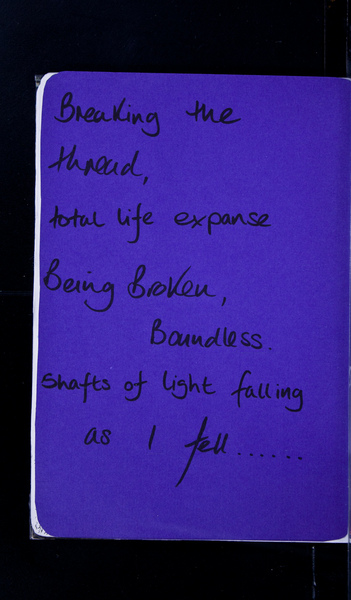 Breaking the
thread,
total life expanse
Being Broken,
Boundless.
shafts of light falling
as I fell......